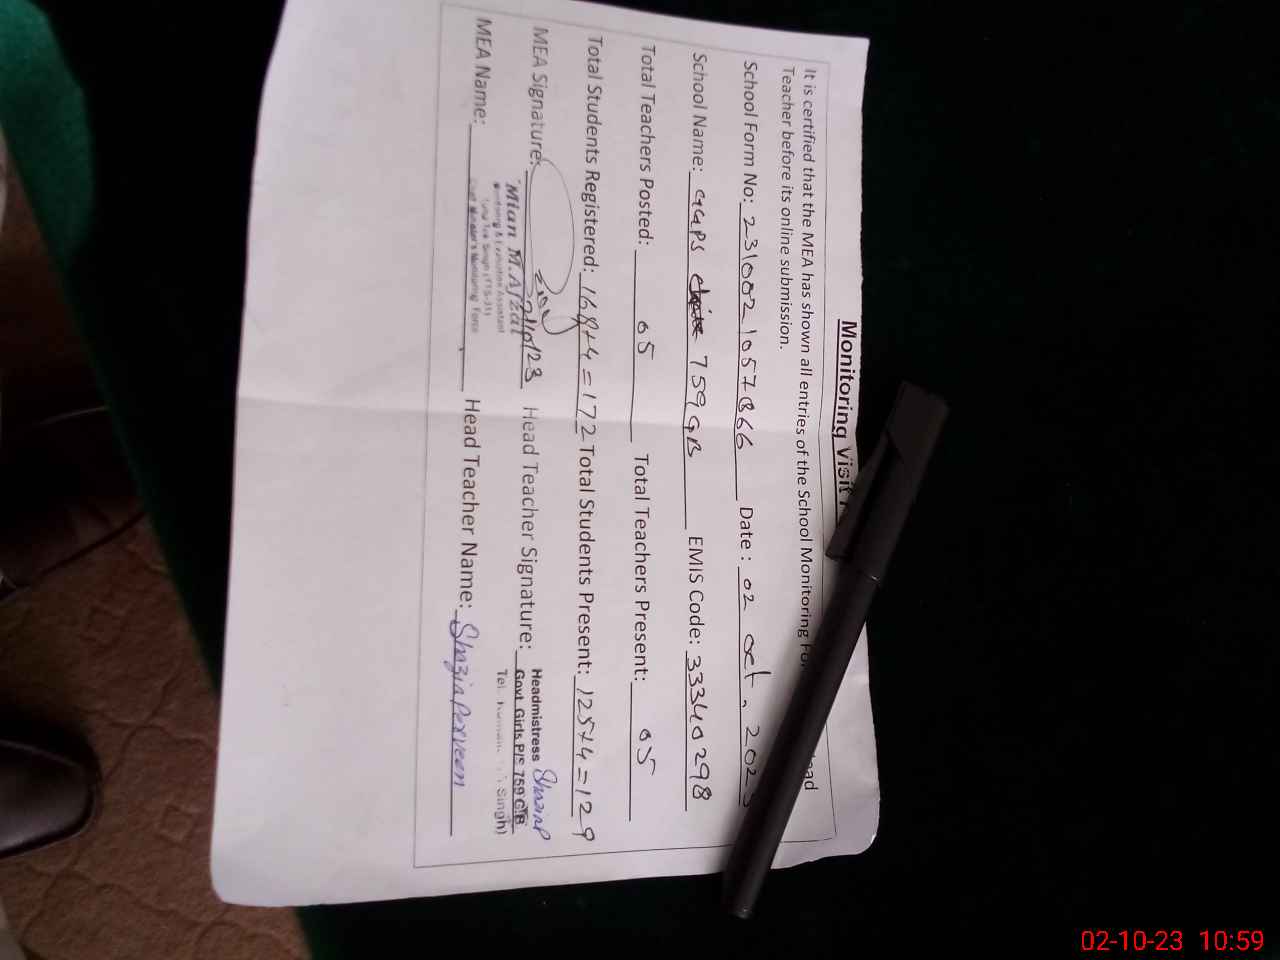 Monitoring Visit
It is certified that the MEA has shown all entries of the School Monitoring Fo ead
Teacher before its online submission.
School Form No: 231002 1057866 Date : 02 oct, 2023
School Name: GGPS 759 GB EMIS Code: 33340298
Total Teachers Posted: 05 Total Teachers Present: 05
Total Students Registered: 168+4=172 Total Students Present: 125+4=129
MEA Signature: 2/10/23 Head Teacher Signature: Shazia P
"Mian M. Afzal Headmistress
Monitoring & Evaluation Assistant Govt Girls P/S 759 GB
Toba Tek Singh (TTS-31) Teh. Singh)
Chief Minister's Monitoring Force
MEA Name: Head Teacher Name: Shazia Perveen
02-10-23 10:59